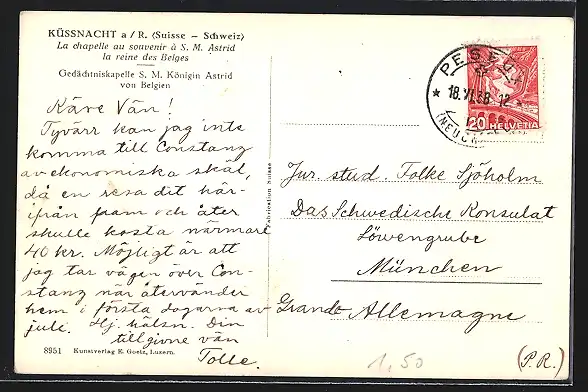 KÜSSNACHT a/R. (Suisse – Schweiz)
La chapelle au souvenir à S. M. Astrid
la reine des Belges
Gedächtniskapelle S. M. Königin Astrid
von Belgien
Käre Vän!
Tyvärr kan jag inte
komma till Constanz
av ekonomiska skäl,
då en resa dit här-
ifrån fram och åter
skulle kosta närmare
40 kr. Möjligt är att
jag tar vägen över Con-
stanz när återvänder
hem i första dagarna av
juli. Hj. hälsn. Din
tillgivne vän
Tolle.
8951 Kunstverlag E. Goetz, Luzern.
Fabrication Suisse
PESEUX
18.VI.38 12
(NEUCH
20 HELVETIA
Jur. stud. Folke Sjöholm
Das Schwedische Konsulat
Löwengrube
München
Grande Allemagne
(P.R.)
1,50